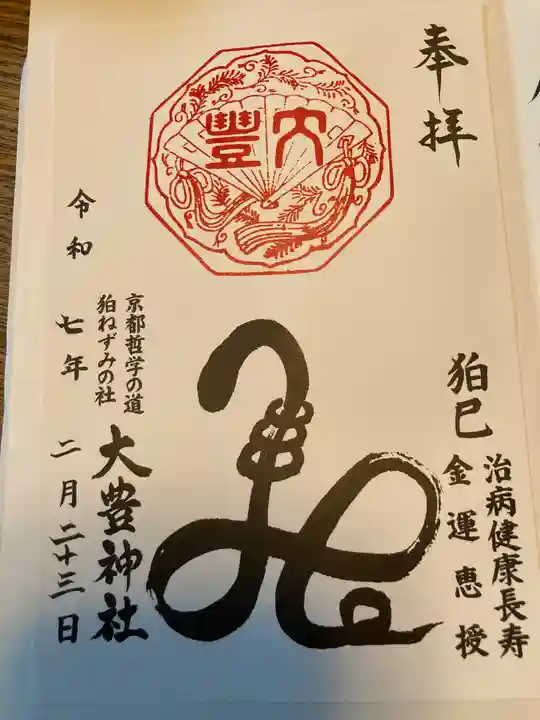 奉拝
大豊
狛巳
治病健康長寿
金運恵授
京都哲学の道
狛ねずみの社
大豊神社
令和七年二月二十三日